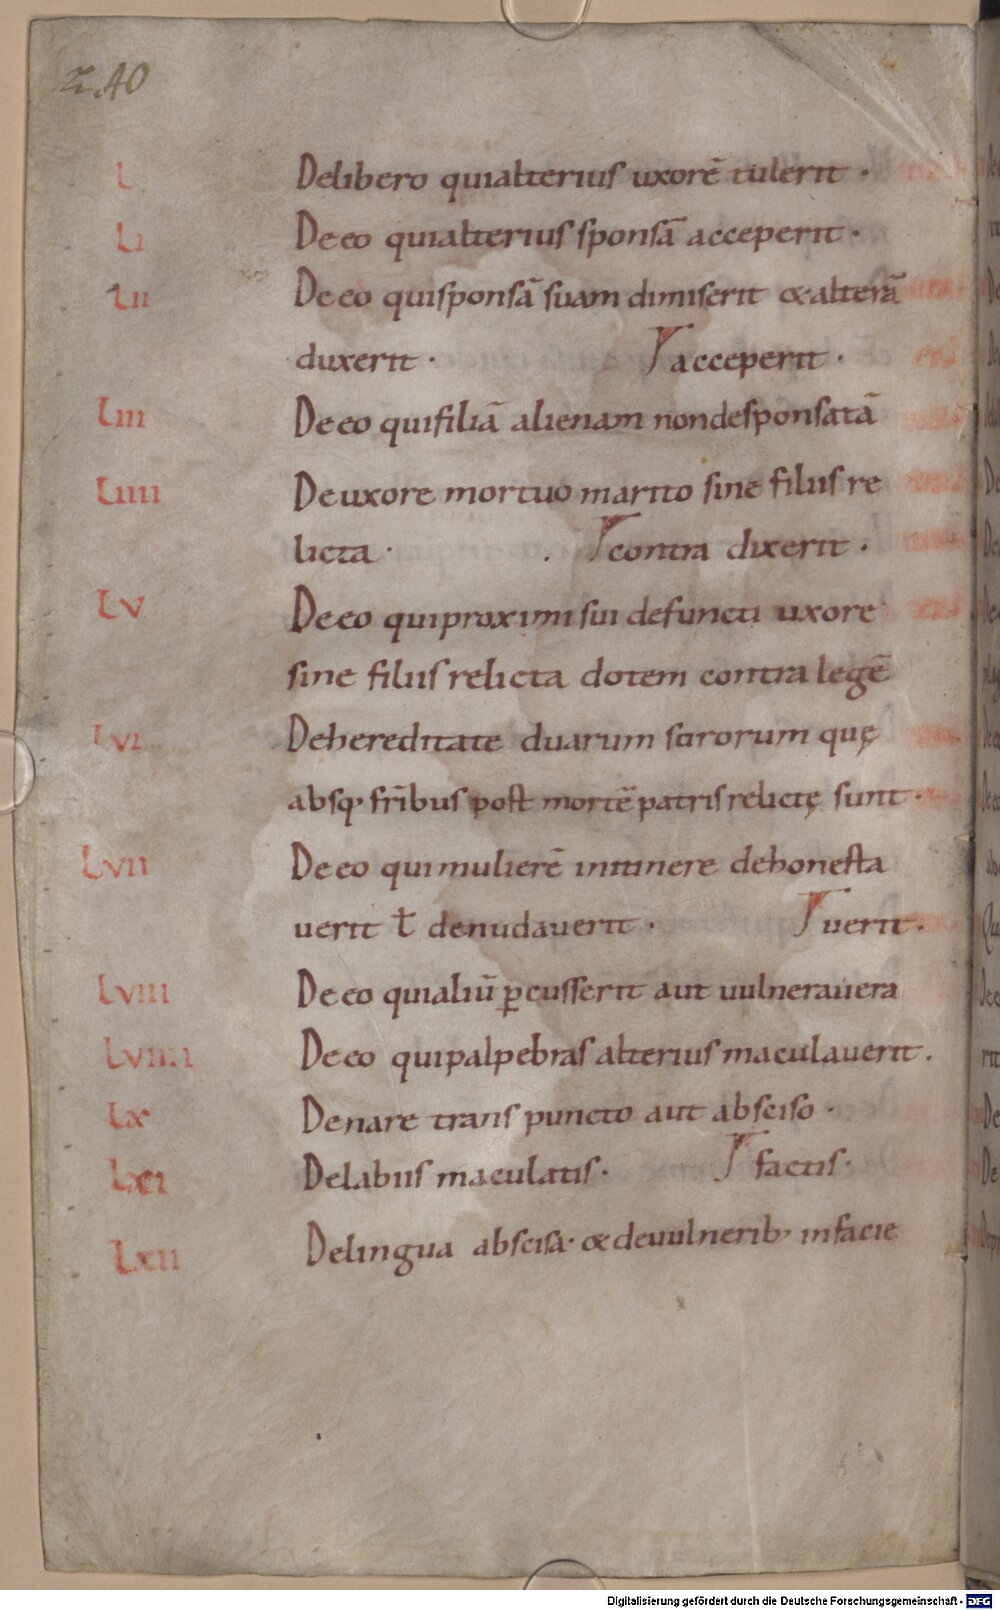 240
L Delibero quialterius uxorē tulerit ·
LI Deeo quialterius sponsā acceperit ·
LII Deeo quisponsā suam dimiserit & alterā
duxerit · acceperit ·
LIII Deeo quifiliā alienam nondesponsatā
LIIII Deuxore mortuo marito sine filiis re
licta · contra dixerit ·
LV Deeo quiproximi sui defuncti uxore
sine filiis relicta dotem contra legē
LVI Dehereditate duarum sororum quę
absq; fr̄ibus post mortē patris relictę sunt ·
LVII Deeo quimulierē initinere dehonesta
uerit ł denudauerit · uerit ·
LVIII Deeo quialiū ꝑcusserit aut uulnerauera
LVIIII Deeo quipalpebras alterius maculauerit ·
LX Denare trans puncto aut absciso ·
LXI Delabiis maculatis · factis ·
LXII Delingua abscisa · & deuulnerib; infacie
Digitalisierung gefördert durch die Deutsche Forschungsgemeinschaft - DFG